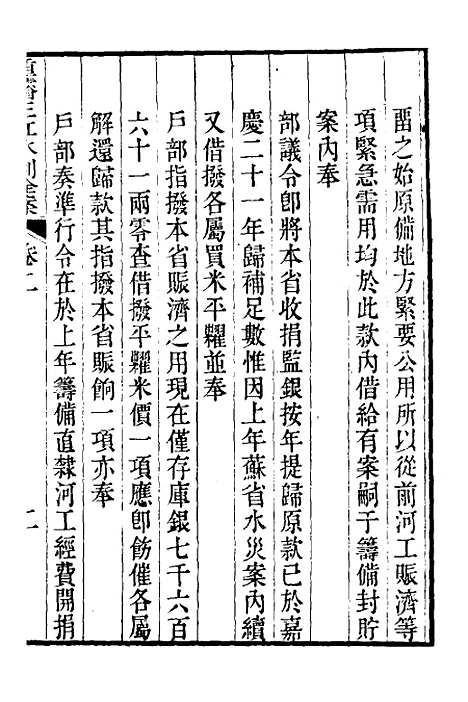 畱之始原備地方緊要公用所以從前河工賑濟等
項緊急需用均於此款內借給有案嗣于籌備封貯
案內奉
部議令卽將本省收捐監銀按年提歸原款已於嘉
慶二十一年歸補足數惟因上年蘇省水災案內續
又借撥各屬買米平糶並奉
戶部指撥本省賑濟之用現在僅存庫銀七千六百
六十一兩零查借撥平糶米價一項應卽飭催各屬
解還歸款其指撥本省賑餉一項亦奉
戶部奏準行令在於上年籌備直隸河工經費開捐
重濬三江水利全案 卷二 二